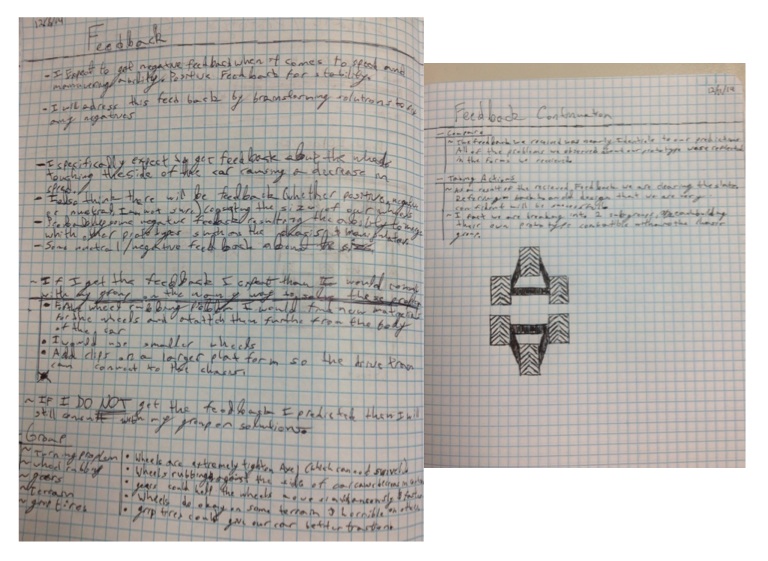 Feedback
- I Expect to get negative feedback when it comes to speed and
ability. Positive Feedback for stability.
- I will adress this feed back by brainstorming solutions to fix
any negatives
- I specifically expect to get feedback about the wheels
touching the side of the car causing a decrease in
speed.
- I also think there will be feedback (whether positive, negative
or neutral, I am not sure) regarding the size of our wheels
- Probably some negative feedback regarding the ability to merge
with other prototypes such as the
- Some neutral/negative feedback about
~ If I get the feedback I expect then I would
with my group on the
wheel rubbing I would find new
for the wheels and attatch them further from the body
of the car
• I would use smaller wheels
• Add clips on a larger platform so the drive train
can connect to the chassis.
~ If I DO NOT get the feedback I predicted then I will
still with my group on solutions.
- Group
~ Turning problem • Wheels are extremely tight on Axel (which can not swivel)
~ wheel rubbing • Wheels rubbing against the side of car
~ gears • gears could help the wheels move simultaneously & faster
~ terrain • Wheels do okay on some terrain & horrible on others
~ grip tires • grip tires could give our car better traction
Feedback Conformation
- Compare
- The feedback we recieved was nearly identicle to our predictions
All of the problems we observed about our prototype were reflected
in the forms we recieved.
- Taking Actions
- As a result of the recieved feedback we are clearing the slate
Referring back to an old design that we are very
confident will be successful.
- I fact we are breaking into 2 subgroups. Each building
their own prototype
group.